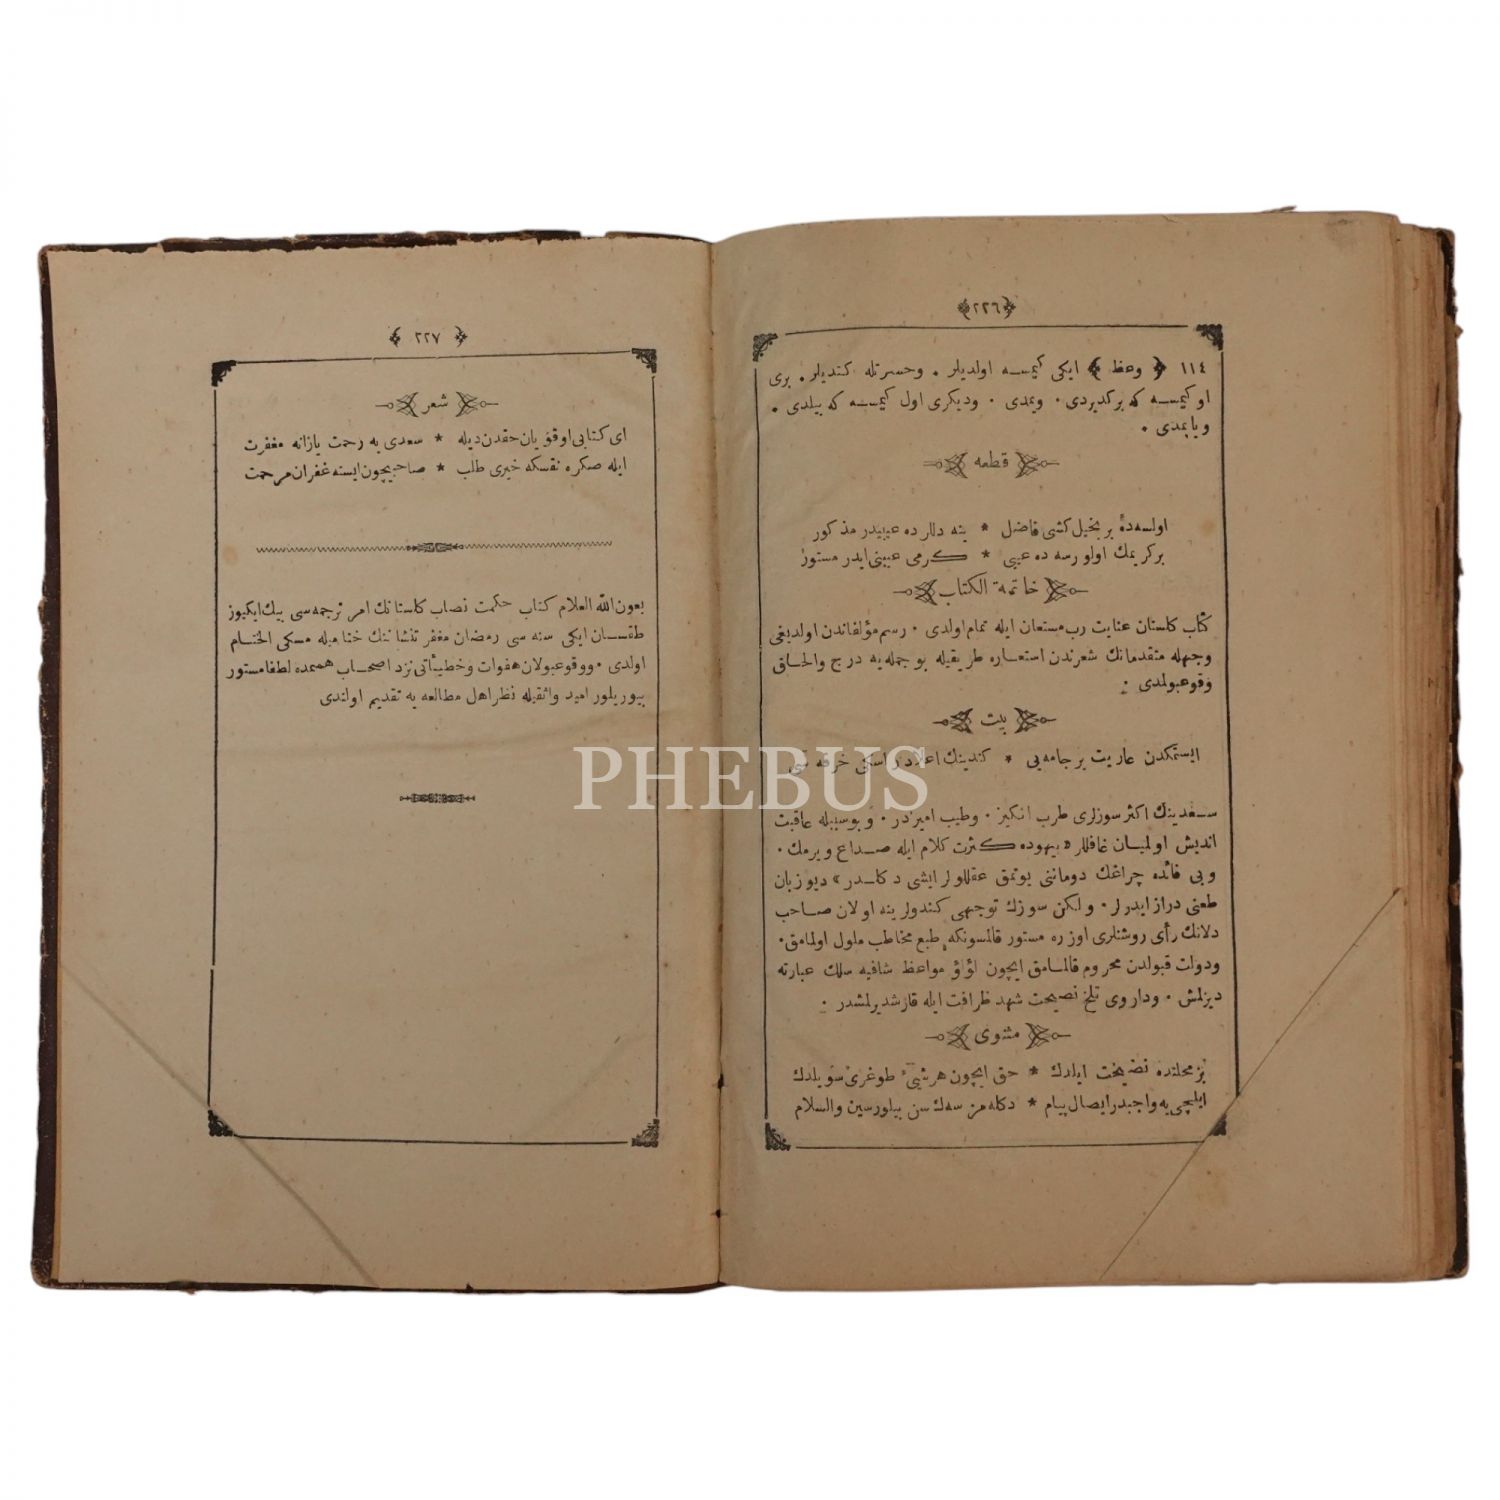 ﴿٢٢٦﴾
١١٤ ﴿ وعظ ﴾ ایکی کیمسه اولدیلر . وحسرتله کتدیلر . بری
اوکیمسه که برکدیردی . ویمدی . ودیکری اول کیمسه که بیلدی .
ویاپمدی .
قطعه
اولسه ده بر بخیل کشی فاضل * ینه دللرده عیبیدر مذکور
برکریمك اولورسه ده عیبی * کرمی عیبنی ایدر مستور
خاتمة الکتاب
کتاب کلستان عنایت رب مستعان ایله تمام اولدی . رسم مؤلفاندن اولدیغی
وجهله متقدمانك شعرندن استعاره طریقیله بو جمله یه درج والحاق
وقوعبولمدی .
بیت
ایستمکدن عاریت بر جامه یی * کندینك اعلادر اسکی خرقه سی
سعدینك اکثر سوزلری طرب انکیز . وطیب امیزدر . وبوسببله عاقبت
اندیش اولمیان غافللر «بیهوده کثرت کلام ایله صداع ویرمك .
وبی فائده چراغك دوماننی یوتمق عقللولر ایشی دکلدر» دیو زبان
طعنی دراز ایدرلر . ولکن سوزك توجهی کندولرینه اولان صاحب
دلانك رأی روشنلری اوزره مستور قالمسونکه طبع مخاطب ملول اولمامق .
ودولت قبولدن محروم قالمامق ایچون لؤلؤ مواعظ شافیه سلك عبارته
دیزلمش . وداروی تلخ نصیحت شهد ظرافت ایله قارشدیرلمشدر .
مثنوی
بز محلنده نصیحت ایلدك * حق ایچون هر شیئی طوغری سویلدك
ایلچی یه واجبدر ایصال پیام * دکله مزسه ك سن بیلورسین والسلام
﴿ ٢٢٧ ﴾
شعر
ای کتابی اوقویان حقدن دیله * سعدی یه رحمت یازانه مغفرت
ایله صکره نفسکه خیری طلب * صاحبیچون ایسته غفران مرحمت
بعون الله العلام کتاب حکمت نصاب کلستانك امر ترجمه سی بیك ایکیوز
طقسان ایکی سنه سی رمضان مغفرتنشاننك ختامیله مسکی الختام
اولدی . ووقوعبولان هفوات وخطیئاتی نزد اصحاب هممده لطفا مستور
بیوریلور امید واثقیله نظر اهل مطالعه یه تقدیم اولندی
PHEBUS